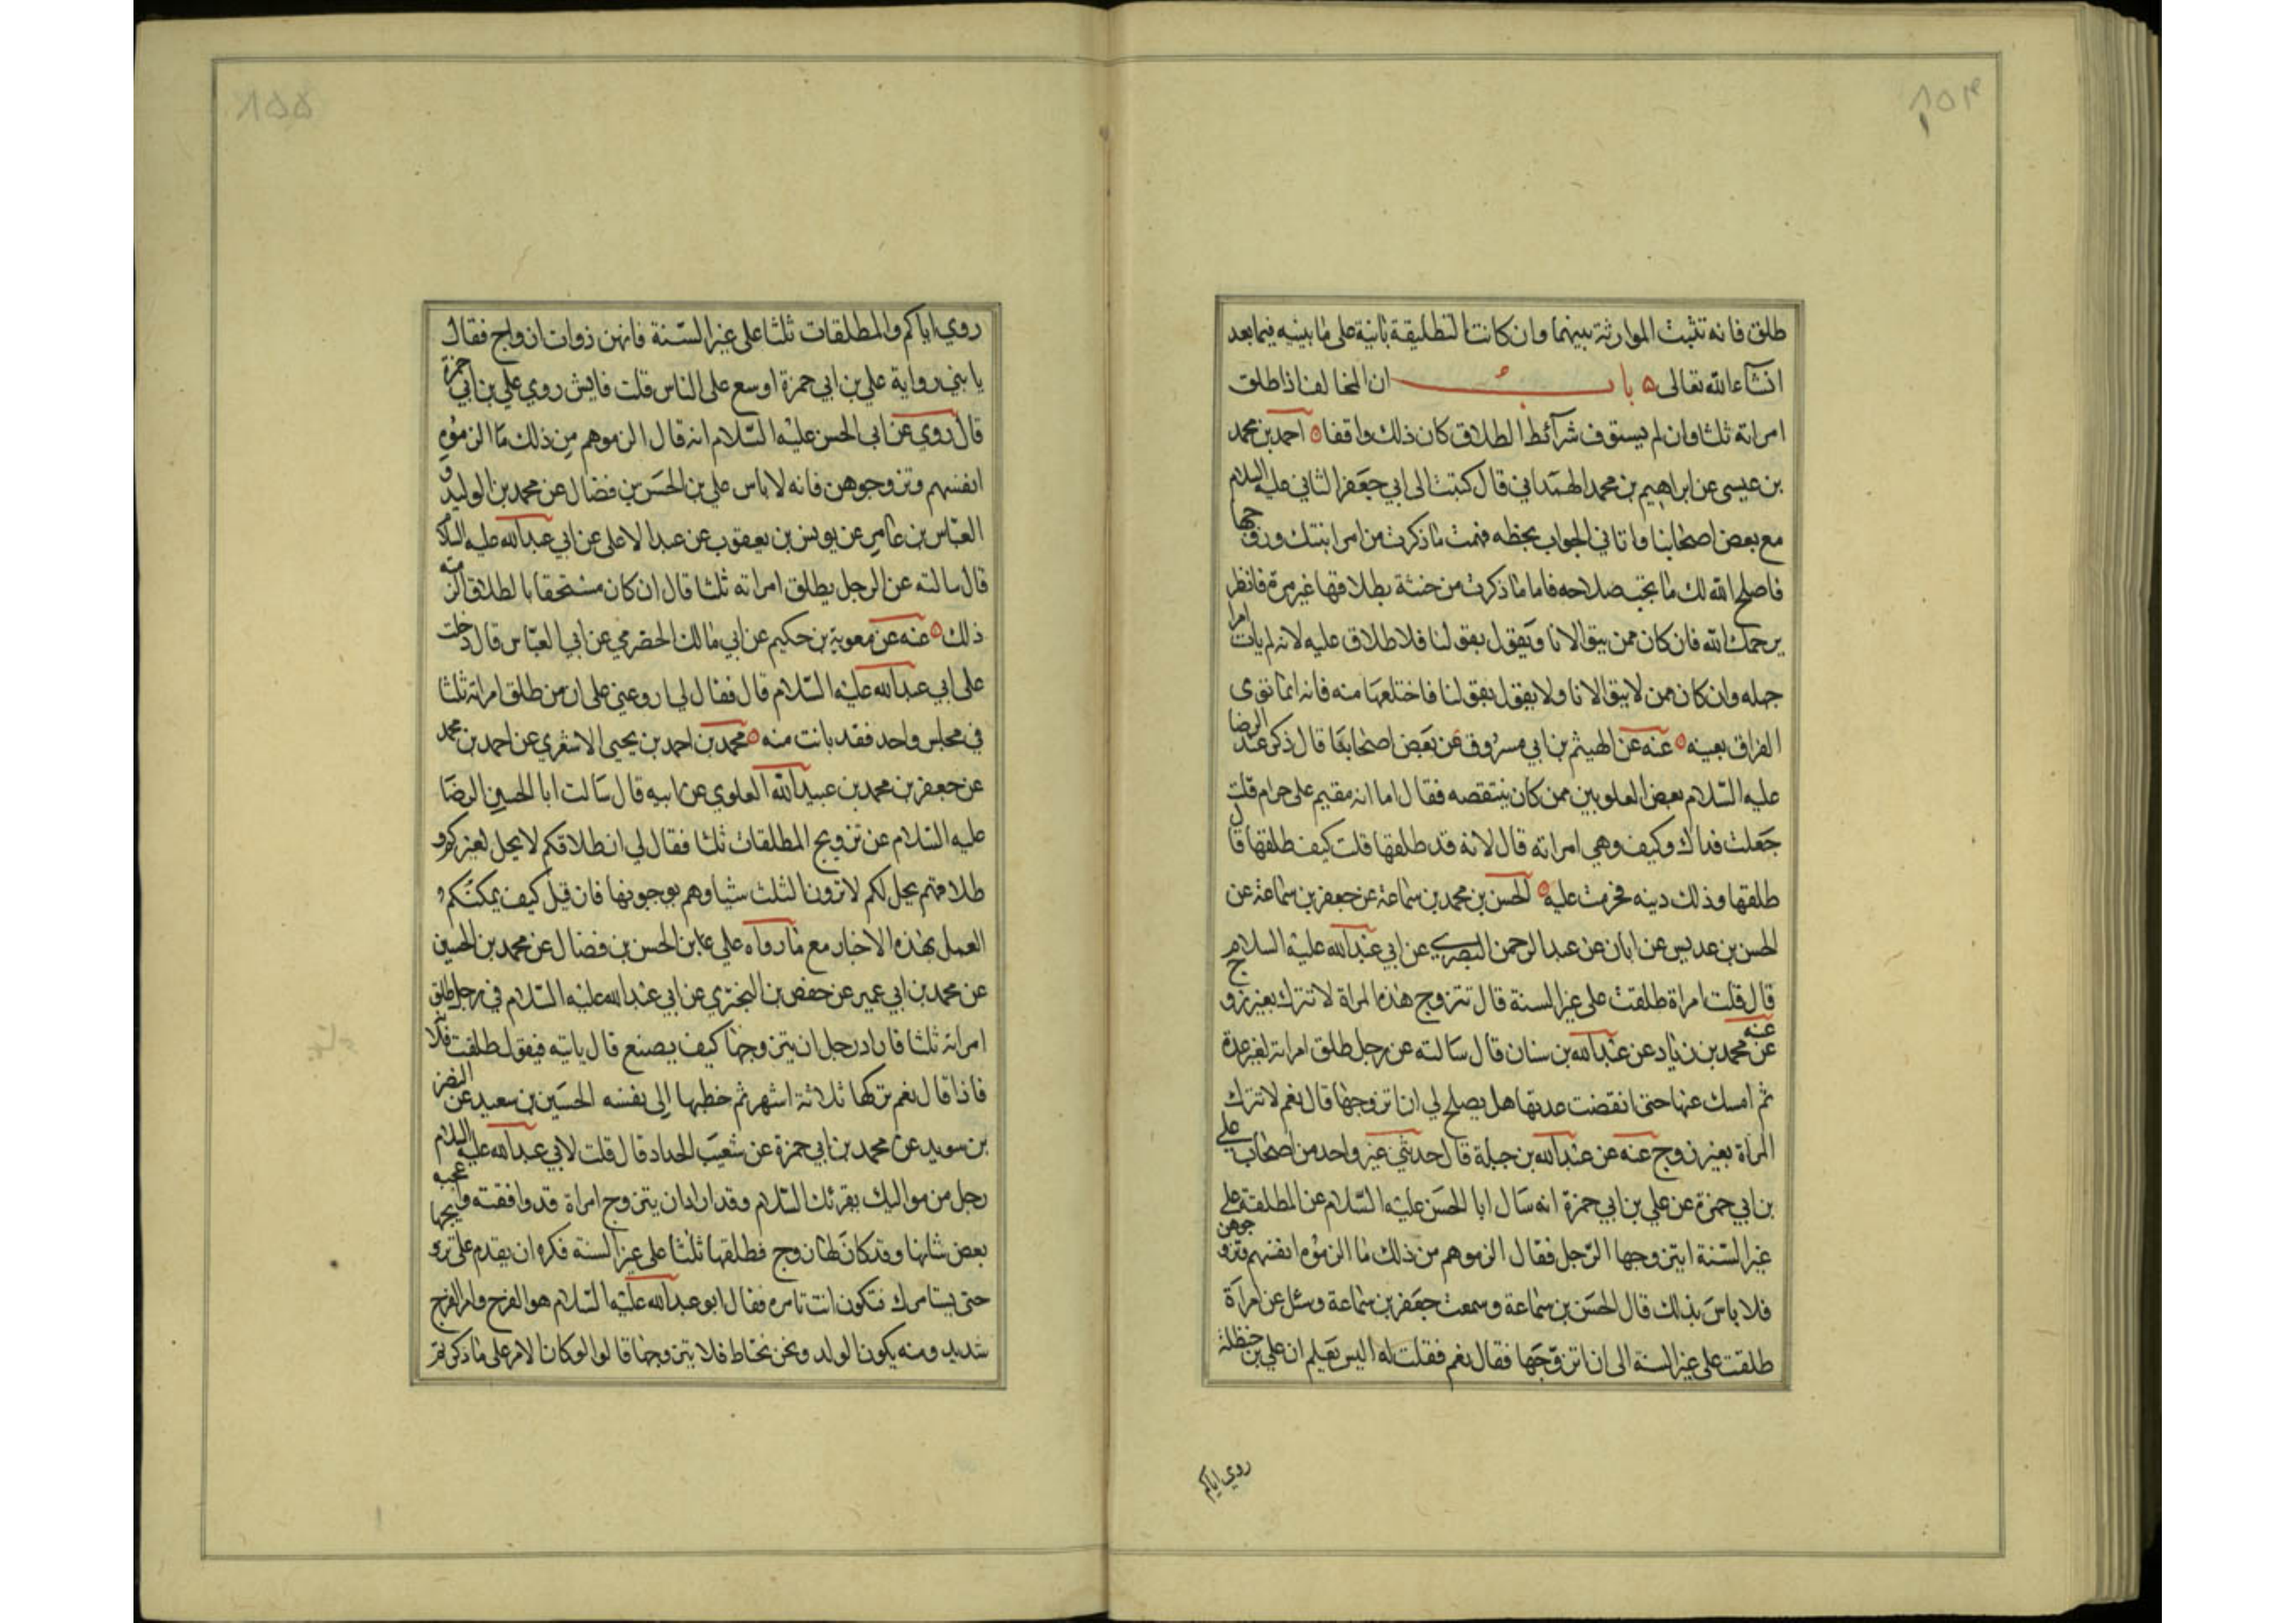 ٨٥٤
طلق فانه تثبت الموارثة بينهما وان كانت التطليقة بانية على ما بينيه فيما بعد
انشاء الله تعالى ٥ باب ان المخالف اذا طلق
امراته ثلثا وان لم يستوف شرائط الطلاق كان ذلك واقعا ٥ احمد بن محمد
بن عيسى عن ابراهيم بن محمد الهمداني قال كتبت الى ابي جعفر الثاني عليه السلام
مع بعض اصحابنا فاتاني الجواب بخطه فهمت ما ذكرت من امر ابنتك وزوجها
فاصلح الله لك ما يجب صلاحه فاما ما ذكرت من حنثه بطلاقها غير مرة فانظر
يرحمك الله فان كان ممن يتوالانا ويقول بقولنا فلا طلاق عليه لانه لم يات امرا
جهله وان كان ممن لا يتوالانا ولا يقول بقولنا فاختلعها منه فانه انما نوى
الفراق بعينه ٥ عنه عن الهيثم بن ابي مسروق عن بعض اصحابنا قال ذكر عند الرضا
عليه السلام بعض العلويين ممن كان ينتقصه فقال اما انه مقيم على حرام قلت
جعلت فداك وكيف وهي امراته قال لانه قد طلقها قلت كيف طلقها قال
طلقها وذلك دينه فحرمت عليه ٥ الحسن بن محمد بن سماعة عن جعفر بن سماعة عن
الحسن بن عديس عن ابان عن عبد الرحمن البصري عن ابي عبد الله عليه السلام
قال قلت امراة طلقت على غير السنة قال تتزوج هذه المراة لا تترك بغير زوج
عنه عن محمد بن زياد عن عبد الله بن سنان قال سالته عن رجل طلق امراته لغير عدة
ثم امسك عنها حتى انقضت عدتها هل يصلح لي ان اتزوجها قال نعم لا تترك
المراة بغير زوج عنه عن عبد الله بن جبلة قال حدثني غير واحد من اصحاب علي
بن ابي حمزة عن علي بن ابي حمزة انه سال ابا الحسن عليه السلام عن المطلقة على
غير السنة ايتزوجها الرجل فقال الزموهم من ذلك ما الزموه انفسهم وتزوجوهن
فلا باس بذلك قال الحسن بن سماعة وسمعت جعفر بن سماعة وسئل عن امراة
طلقت على غير السنة الى ان اتزوجها فقال نعم فقلت له اليس تعلم ان علي بن حنظلة
روي اياكم
٨٥٥
روي اياكم والمطلقات ثلثا على غير السنة فانهن ذوات ازواج فقال
يا بني رواية علي بن ابي حمزة اوسع على الناس قلت فايش روي علي بن ابي حمزة
قال روي عن ابي الحسن عليه السلام انه قال الزموهم من ذلك ما الزموه
انفسهم وتزوجوهن فانه لا باس علي بن الحسن بن فضال عن محمد بن الوليد و
العباس بن عامر عن يونس بن يعقوب عن عبد الاعلى عن ابي عبد الله عليه السلام
قال سالته عن الرجل يطلق امراته ثلثا قال ان كان مستحقا بالطلاق الزمته
ذلك ٥ عنه عن معوية بن حكيم عن ابي مالك الحضرمي عن ابي العباس قال دخلت
على ابي عبد الله عليه السلام قال فقال لي اروعني على ان من طلق امراته ثلثا
في مجلس واحد فقد بانت منه ٥ محمد بن احمد بن يحيى الاشعري عن احمد بن محمد
عن جعفر بن محمد بن عبيد الله العلوي عن ابيه قال سالت ابا الحسن الرضا
عليه السلام عن تزويج المطلقات ثلثا فقال لي ان طلاقكم لا يحل لغيركم و
طلاقهم يحل لكم لا ترون الثلث شيا وهم يوجبونها فان قيل كيف يمكنكم
العمل بهذه الاخبار مع ما رواه علي بن الحسن بن فضال عن محمد بن الحسين
عن محمد بن ابي عمير عن حفص بن البختري عن ابي عبد الله عليه السلام في رجل طلق
امراته ثلثا فاراد رجل ان يتزوجها كيف يصنع قال ياتيه فيقول طلقت فلانة
فاذا قال نعم تركها ثلاثة اشهر ثم خطبها الى نفسه الحسين بن سعيد عن النضر
بن سويد عن محمد بن ابي حمزة عن شعيب الحداد قال قلت لابي عبد الله عليه السلام
رجل من مواليك يقرئك السلام وقد اراد ان يتزوج امراة قد وافقته واعجبه
بعض شانها وقد كان لها زوج فطلقها ثلثا على غير السنة فكره ان يقدم على تزويجها
حتى يستامرك فتكون انت تامره فقال ابو عبد الله عليه السلام هو الفرج وامر الفرج
شديد ومنه يكون الولد ونحن نحتاط فلا يتزوجها قالوا لو كان الامر على ما ذكرتم